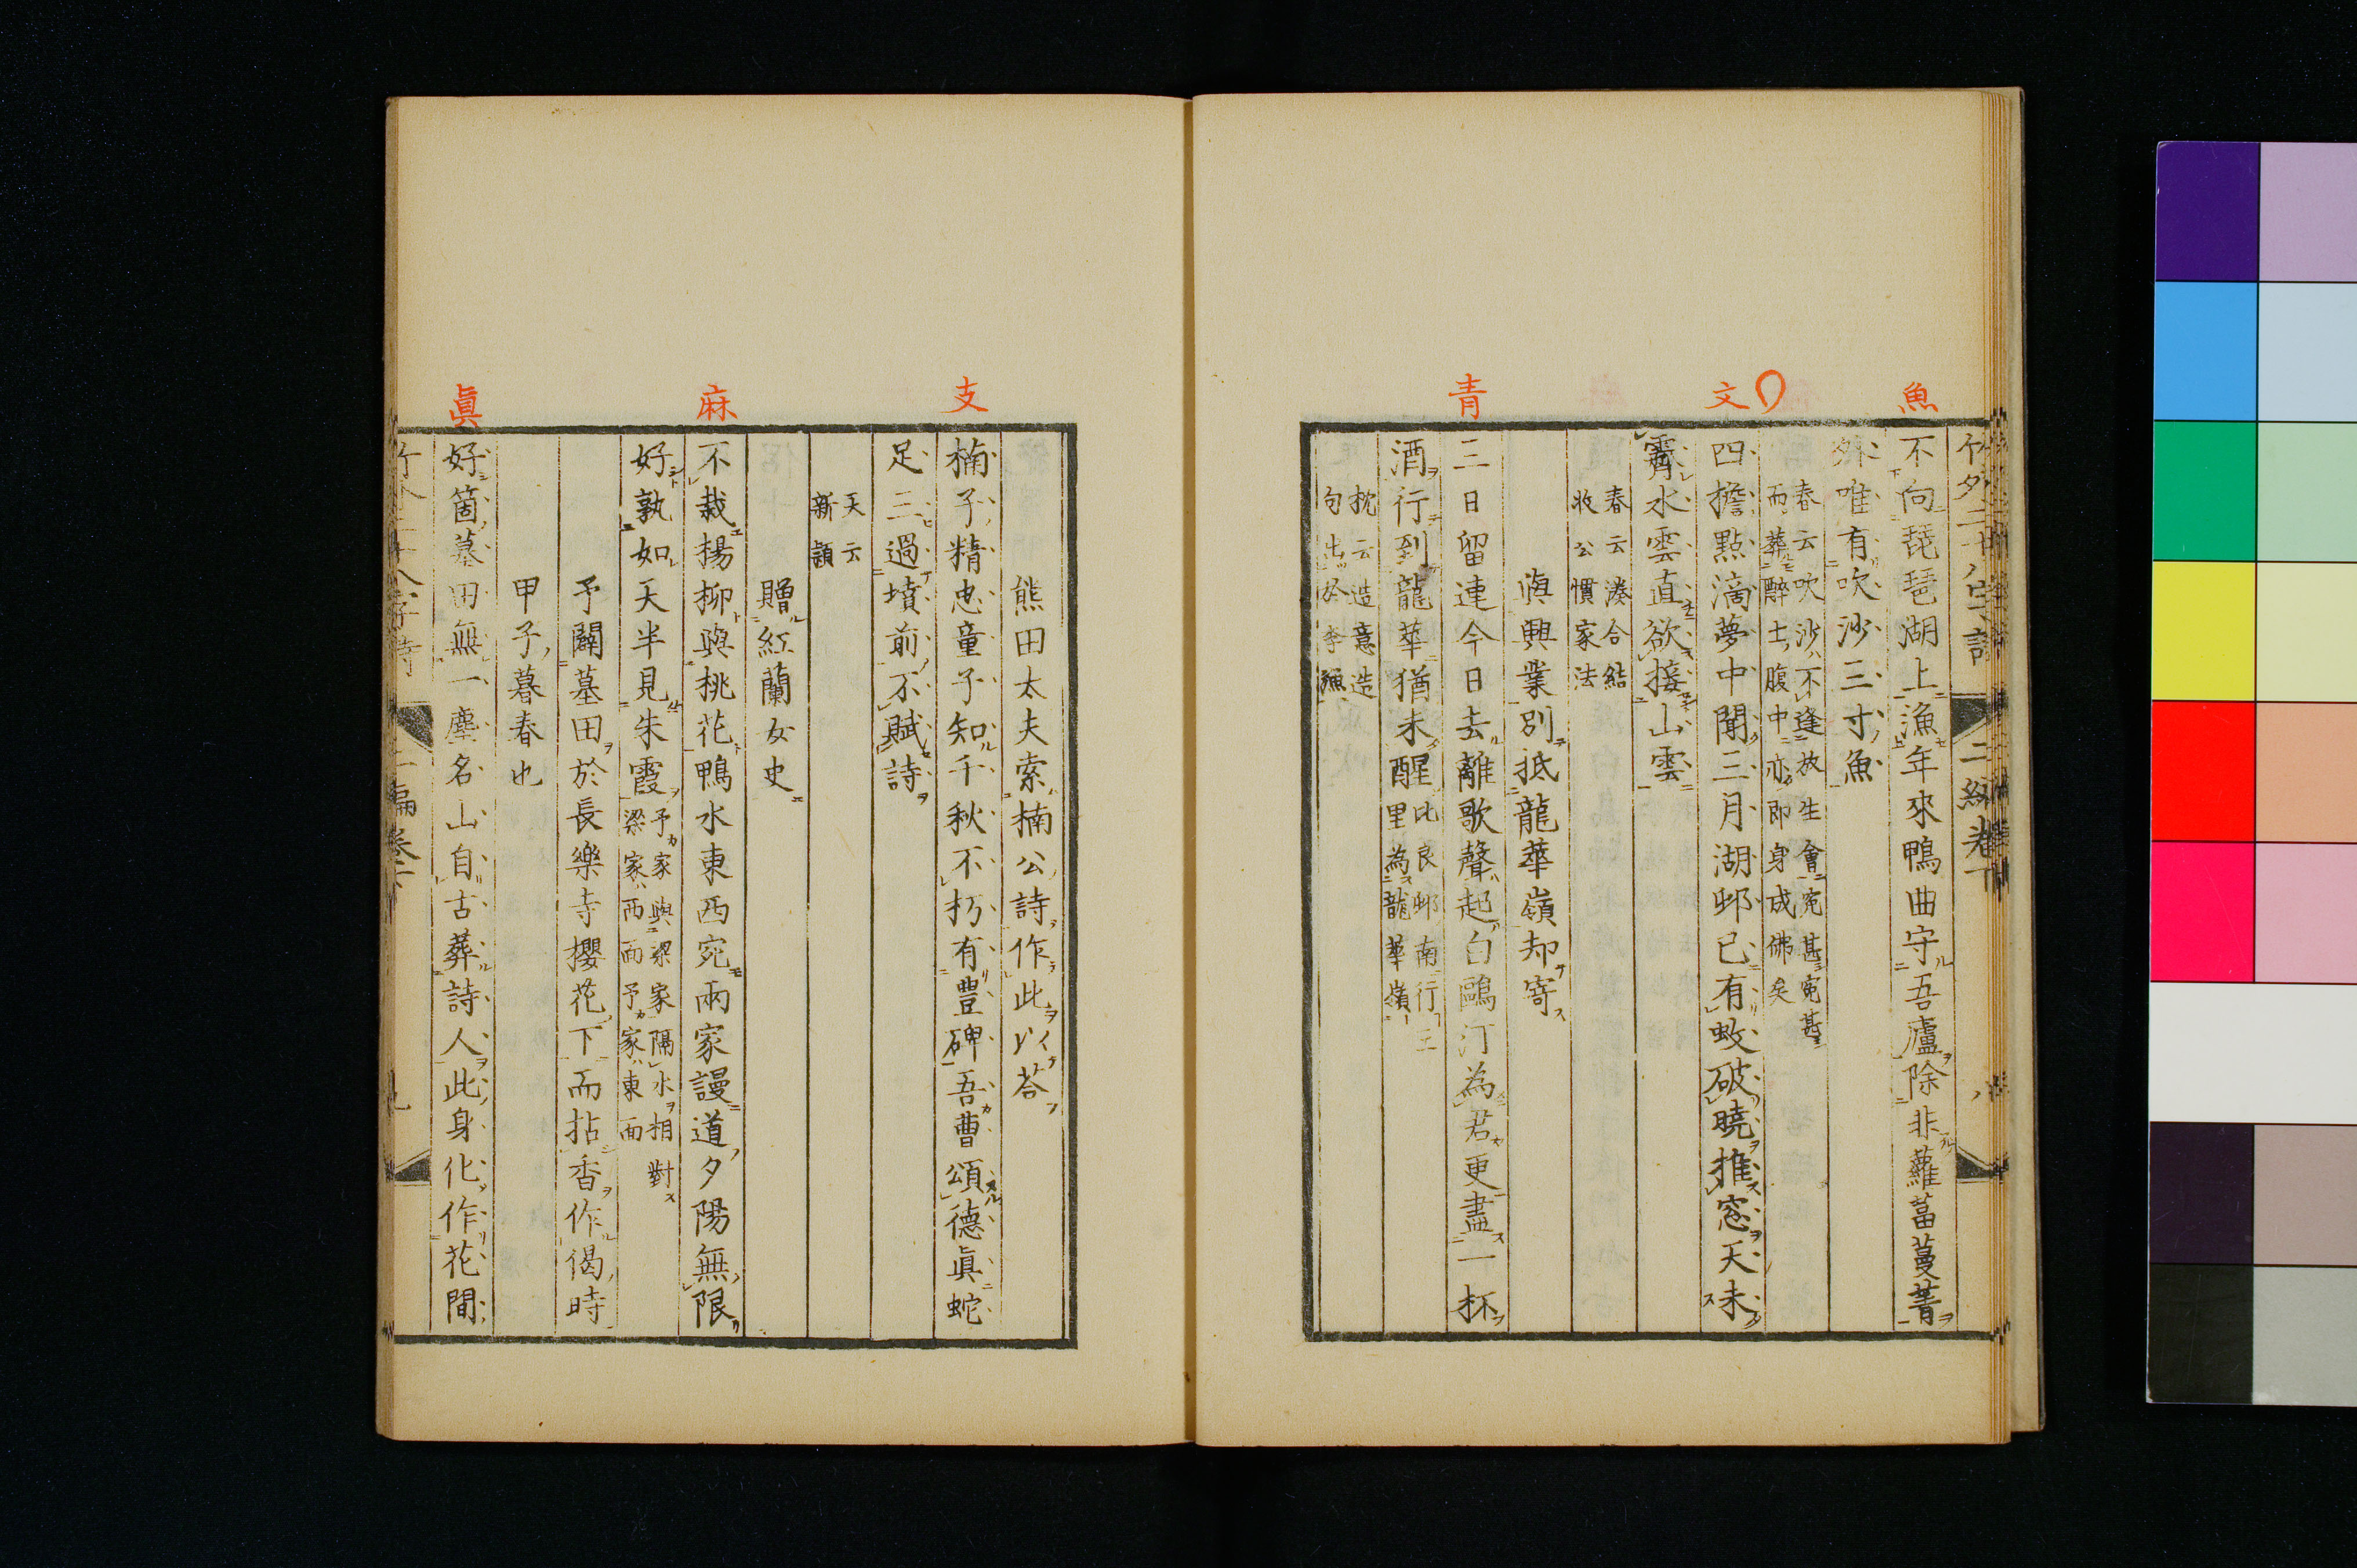 魚
文
青
不向琵琶湖上漁年來鴨曲守吾廬除非蘿葍蔓菁
外唯有吹沙三寸魚
春云吹沙不逢放生會寃甚寃甚
而葬醉士腹中亦即身成佛矣
四檐點滴夢中聞三月湖邨已有蚊破曉推窓天未
霽水雲直欲接山雲
春云湊合結
收公慣家法
與興業別抵龍華嶺却寄
三日留連今日去離歌聲起白鷗汀為君更盡一杯
酒行到龍華猶未醒
比良邨南行三
里為龍華嶺
枕云造意造
句出於李
支
麻
眞
熊田太夫索楠公詩作此以荅
楠子精忠童子知千秋不朽有豊碑吾曹頌德眞蛇
足三過墳前不賦詩
天云
新頴
贈紅蘭女史
不栽楊柳與桃花鴨水東西宛兩家謾道夕陽無限
好孰如天半見朱霞
予家與梁家隔水相對
梁家西而予家東面
予闢墓田於長樂寺櫻花下而拈香作偈時
甲子暮春也
好箇墓田無一塵名山自古葬詩人此身化作花間